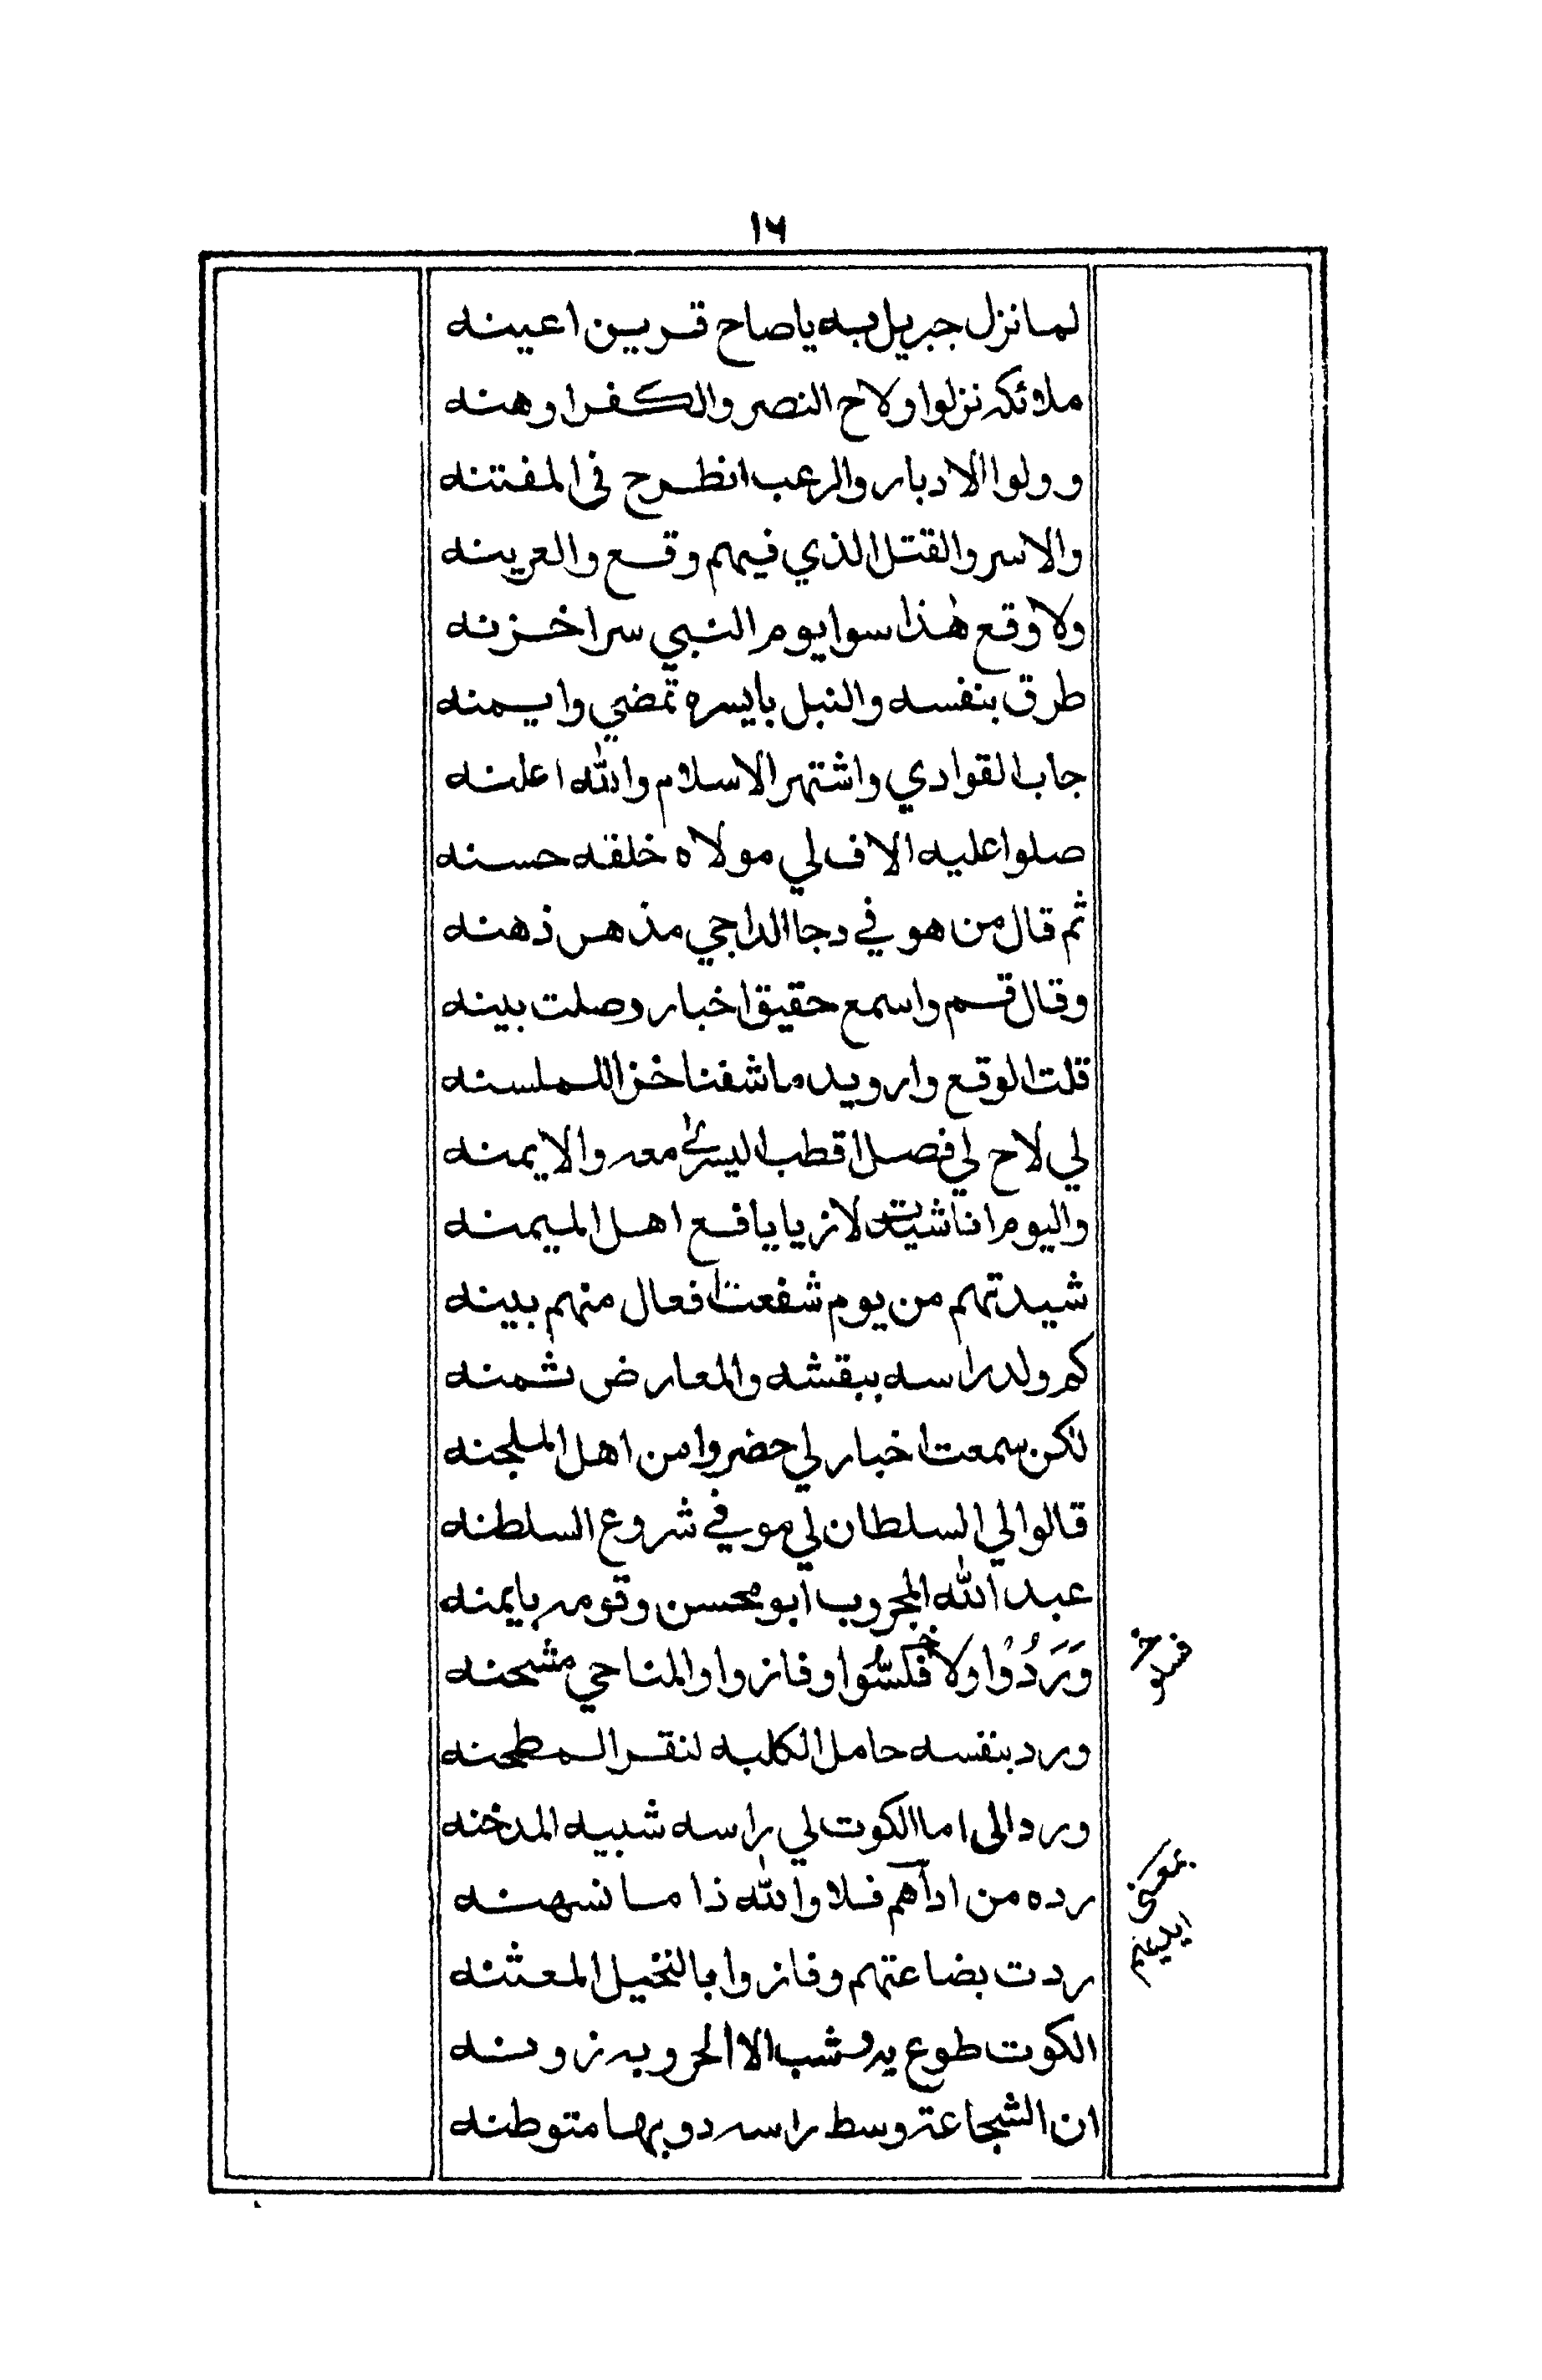 ١٦
لما نزل جبريل به يا صاح قرين اعينه
ملائكه نزلوا ولاح النصر والكفر اوهنه
وولوا الادبار والرعب انطرح فى المفتنه
والاسر والقتل الذي فيهم وقع والعرينه
ولا وقع هٰذا سوا يوم النبي سر اخزنه
طرق بنفسه والنبل بايسره تمضي وايمنه
جاب القوادي واشتهر الاسلام والله اعلنه
صلوا عليه الاف لي مولاه خلقه حسنه
ثم قال من هو في دجا الداجي مذهس ذهنه
وقال قسم واسمع حقيق اخبار وصلت بينه
قلت الوقع وارويد ما شفنا خز اللملسنه
لي لاح لي فصل اقطب اليسرى معه والايمنه
واليوم انا شيت لازيا يا يافع اهل الميمنه
شيدتهم من يوم شفعت افعال منهم بينه
كم ولد راسه ببقشه والمعارض ثمنه
لكن سمعت اخبار لي حضروا من اهل الملجنه
قالوا لي السلطان لي مو في شروع السلطنه
عبد الله المجروب ابو محسن وقومه بايمنه
وَرَدُوْا ولا فكسّوا وفازوا والمناحي مشحنه
فسو خ
ورد بنفسه حامل الكلبه لنقر المطحنه
ورد الى اما الكوت لي راسه شبيه المدخنه
رده من ادآهم فلا والله ذا ما نسهنه
بمعنى
ايديهم
ردت بضاعتهم وفازوا بالنخيل المعثنه
الكوت طوع يد وشب الا الحروبه زونه
ان الشجاعة وسط راسه دوبها متوطنه